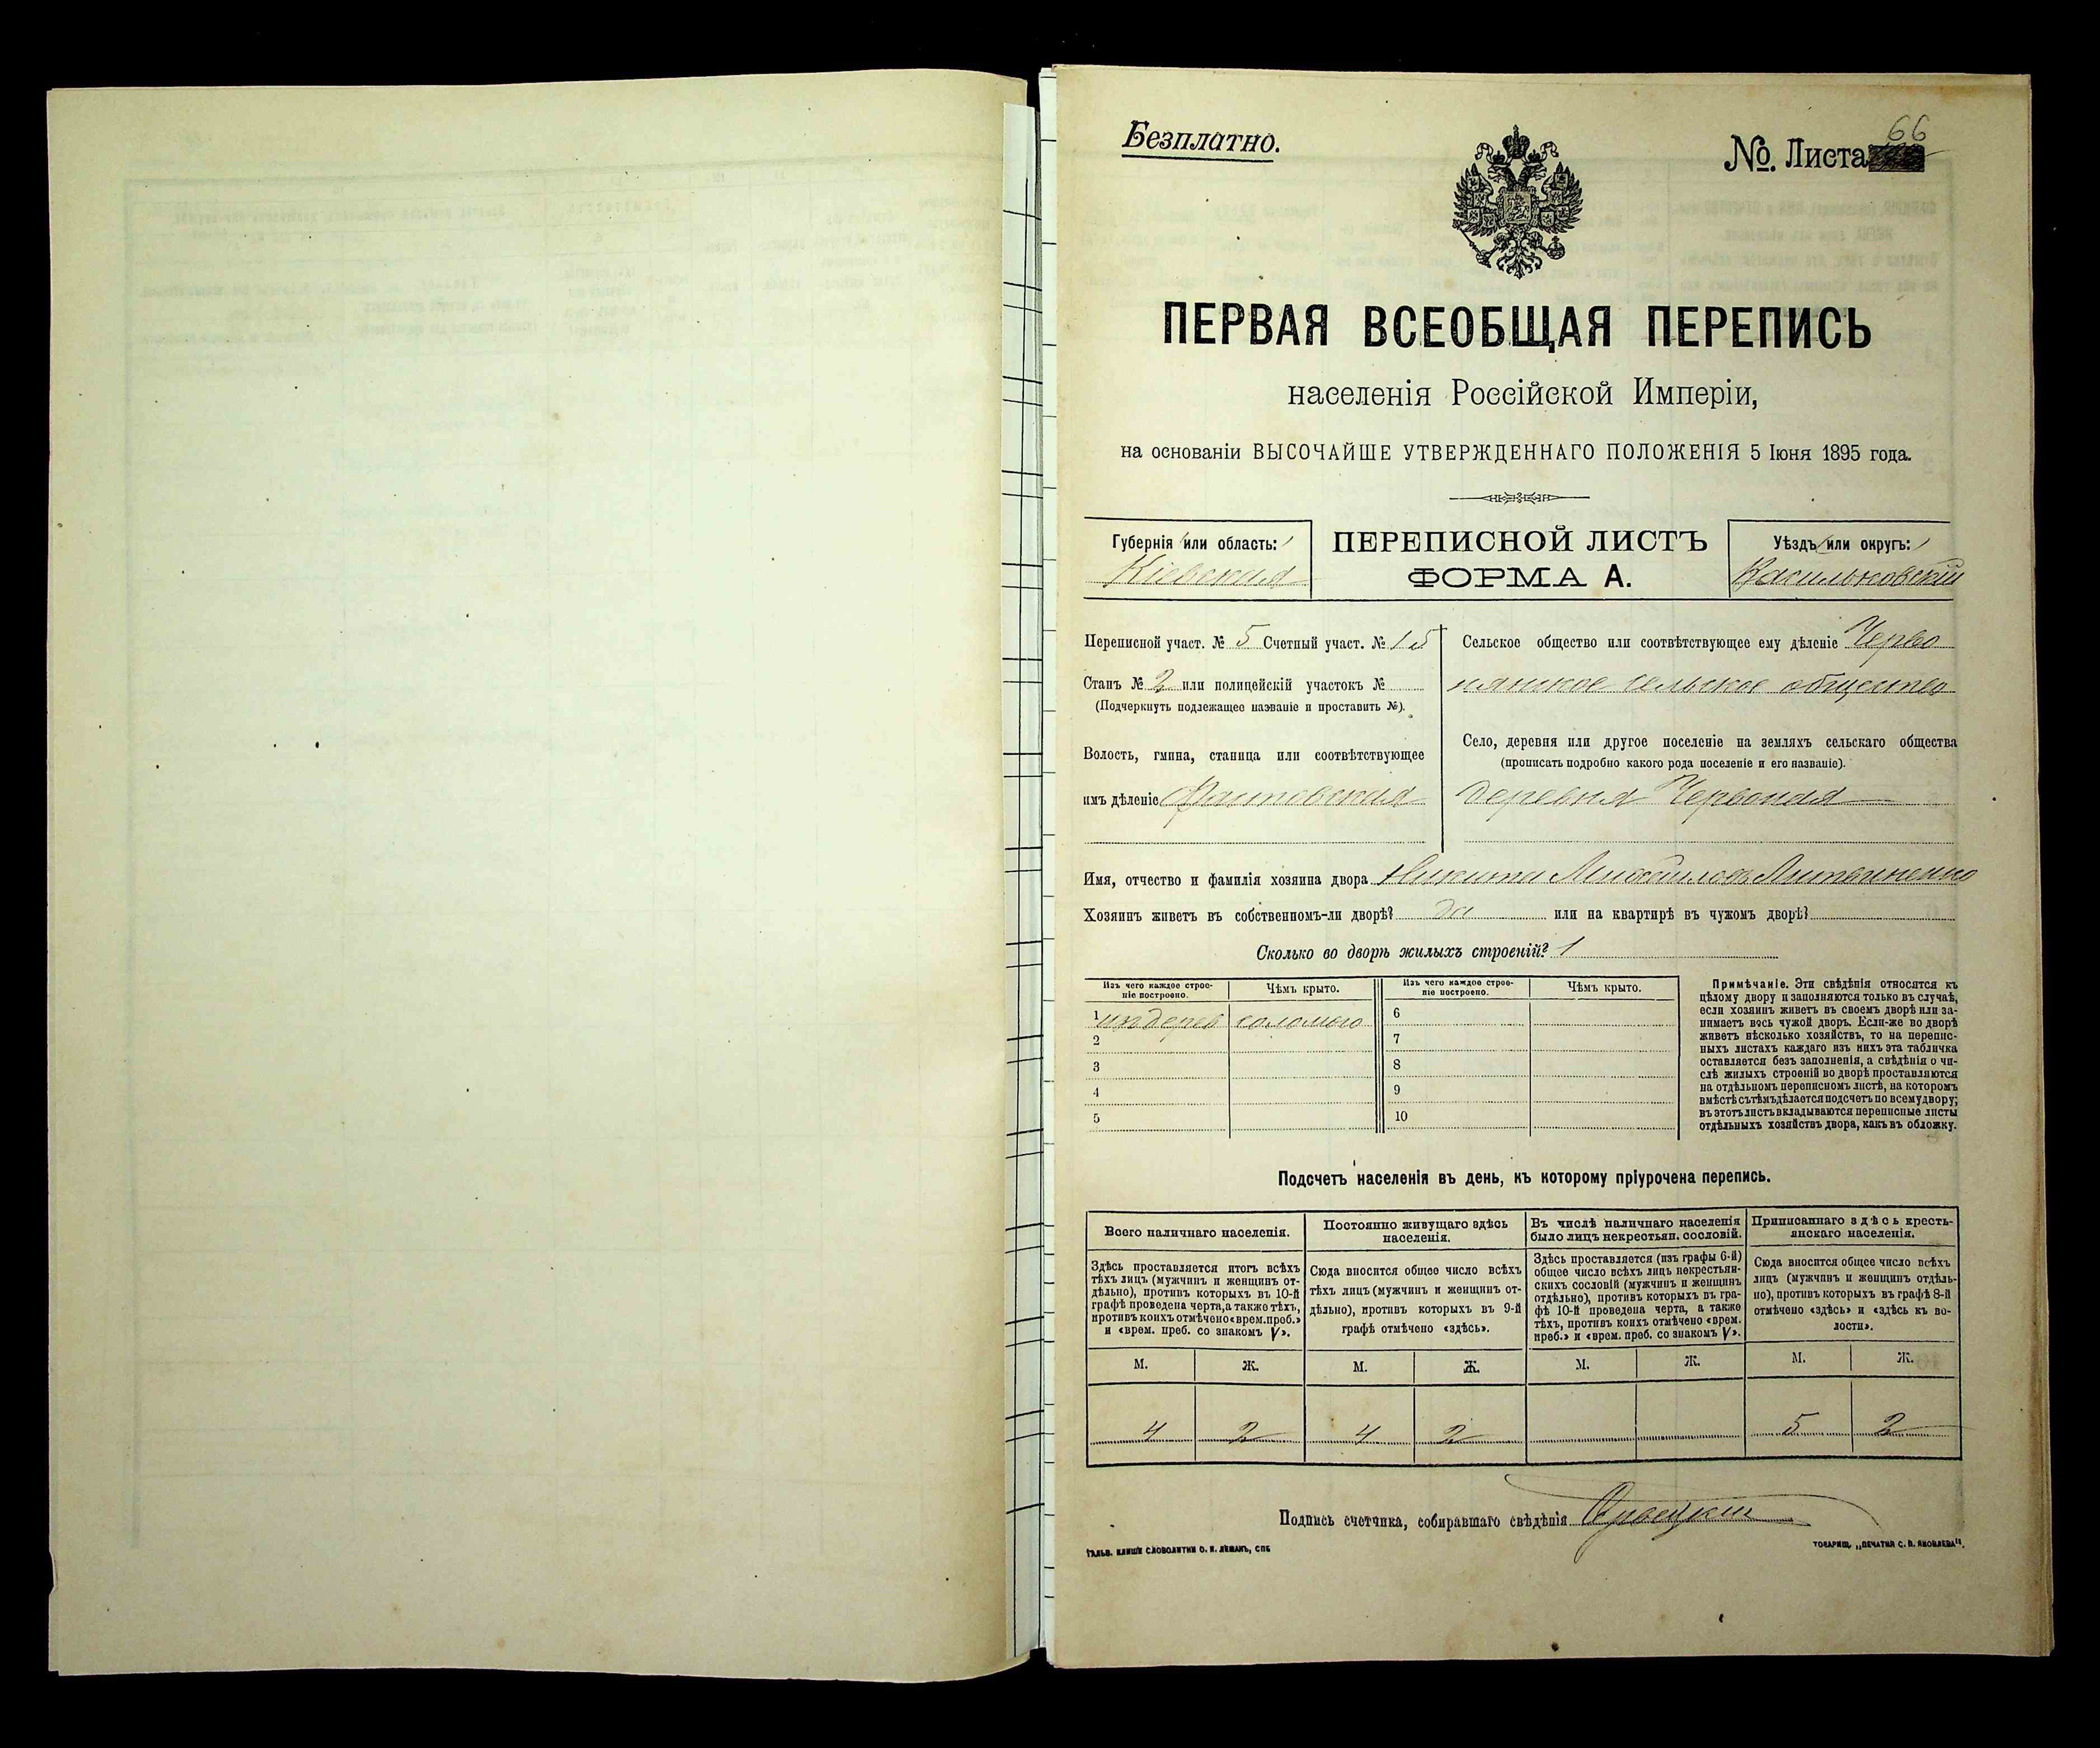 Безплатно.
66
№. Листа
ПЕРВАЯ ВСЕОБЩАЯ ПЕРЕПИСЬ
населенія Россійской Имперіи,
на основаніи ВЫСОЧАЙШЕ УТВЕРЖДЕННАГО ПОЛОЖЕНІЯ 5 Іюня 1895 года.
Губернія или область:
Кіевская
ПЕРЕПИСНОЙ ЛИСТЪ
ФОРМА А.
Уѣздъ или округъ:
Васильковскій
Переписной участ. № 5 Счетный участ. № 15
Станъ № 2 или полицейскій участокъ №
(Подчеркнуть подлежащее названіе и проставить №).
Волость, гмина, станица или соотвѣтствующее
имъ дѣленіе Фастовская
Сельское общество или соотвѣтствующее ему дѣленіе Черво
нянское сельское общество
Село, деревня или другое поселеніе на земляхъ сельскаго общества
(прописать подробно какого рода поселеніе и его названіе).
деревня Червоная
Имя, отчество и фамилія хозяина двора Никита Михайловъ Литвиненко
Хозяинъ живетъ въ собственномъ-ли дворѣ? да или на квартирѣ въ чужомъ дворѣ?
Сколько во дворѣ жилыхъ строеній? 1
Изъ чего каждое строе-
ніе построено.
Чѣмъ крыто.
Изъ чего каждое строе-
ніе построено.
Чѣмъ крыто.
1 изъ дерев соломою
2
3
4
5
6
7
8
9
10
Примѣчаніе. Эти свѣдѣнія относятся къ
цѣлому двору и заполняются только въ случаѣ,
если хозяинъ живетъ въ своемъ дворѣ или за-
нимаетъ весь чужой дворъ. Если-же во дворѣ
живетъ нѣсколько хозяйствъ, то на перепис-
ныхъ листахъ каждаго изъ нихъ эта табличка
оставляется безъ заполненія, а свѣдѣнія о чи-
слѣ жилыхъ строеній во дворѣ проставляются
на отдѣльномъ переписномъ листѣ, на которомъ
вмѣстѣ съ тѣмъ дѣлается подсчетъ по всему двору;
въ этотъ листъ вкладываются переписные листы
отдѣльныхъ хозяйствъ двора, какъ въ обложку.
Подсчетъ населенія въ день, къ которому пріурочена перепись.
Всего наличнаго населенія.
Здѣсь проставляется итогъ всѣхъ
тѣхъ лицъ (мужчинъ и женщинъ от-
дѣльно), противъ которыхъ въ 10-й
графѣ проведена черта, а также тѣхъ,
противъ коихъ отмѣчено «врем. преб.»
и «врем. преб. со знакомъ V».
М. Ж.
4 2
Постоянно живущаго здѣсь
населенія.
Сюда вносится общее число всѣхъ
тѣхъ лицъ (мужчинъ и женщинъ от-
дѣльно), противъ которыхъ въ 9-й
графѣ отмѣчено «здѣсь».
М. Ж.
4 2
Въ числѣ наличнаго населенія
было лицъ некрестьян. сословій.
Здѣсь проставляется (изъ графы 6-й)
общее число всѣхъ лицъ некрестьян-
скихъ сословій (мужчинъ и женщинъ
отдѣльно), противъ которыхъ въ гра-
фѣ 10-й проведена черта, а также
тѣхъ, противъ коихъ отмѣчено «врем.
преб.» и «врем. преб. со знакомъ V».
М. Ж.
Приписаннаго здѣсь кресть-
янскаго населенія.
Сюда вносится общее число всѣхъ
лицъ (мужчинъ и женщинъ отдѣль-
но), противъ которыхъ въ графѣ 8-й
отмѣчено «здѣсь» и «здѣсь къ во-
лости».
М. Ж.
5 2
Подпись счетчика, собиравшаго свѣдѣнія
ГАЛЬВ. КЛИШЕ СЛОВОЛИТНИ О. И. ЛЕМАНЪ, СПБ
ТОВАРИЩ. „ПЕЧАТНЯ С. П. ЯКОВЛЕВА“.